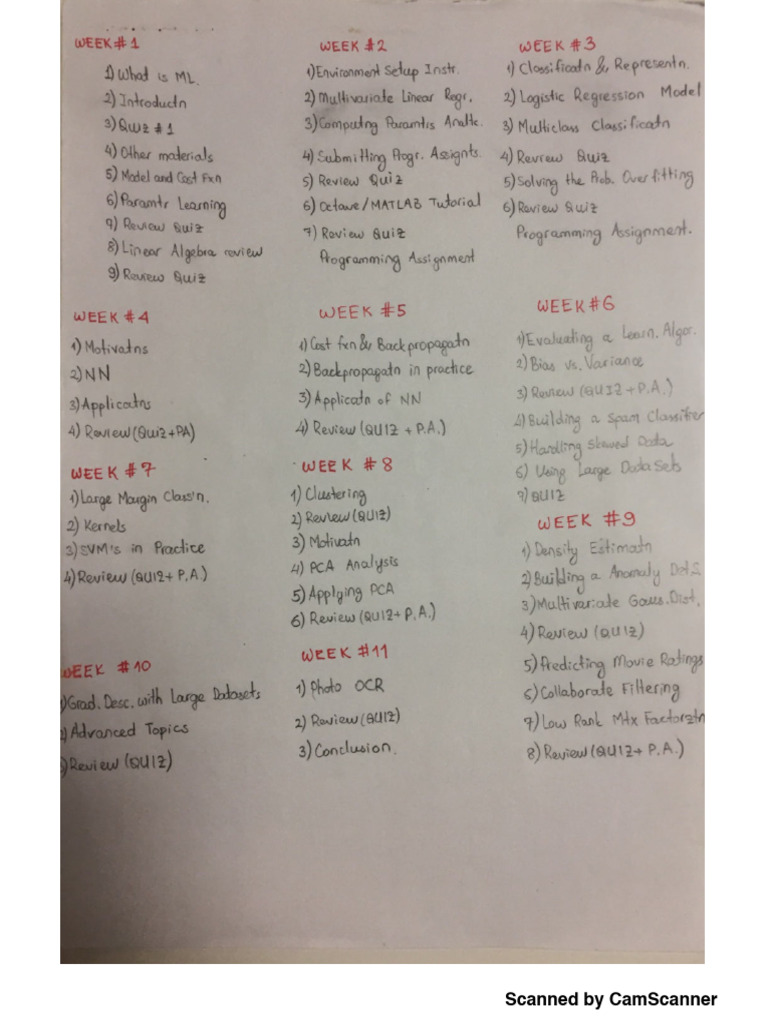 WEEK#1
1) What is ML.
2) Introductn
3) Quiz #1
4) Other materials
5) Model and Cost Fxn
6) Paramtr Learning
7) Review Quiz
8) Linear Algebra review
9) Review Quiz
WEEK #2
1) Environment Setup Instr.
2) Multivariate Linear Regr.
3) Computng Paramtrs Analtc.
4) Submitting Progr. Assignts.
5) Review Quiz
6) Octave/MATLAB Tutorial
7) Review Quiz
Programming Assignment
WEEK #3
1) Classificatn & Representn.
2) Logistic Regression Model
3) Multiclass Classificatn
4) Review Quiz
5) Solving the Prob. Overfitting
6) Review Quiz
Programming Assignment.
WEEK #4
1) Motivatns
2) NN
3) Applicatns
4) Review (Quiz+PA)
WEEK #5
1) Cost fxn & Backpropagatn
2) Backpropagatn in practice
3) Applicatn of NN
4) Review (QUIZ + P.A.)
WEEK #6
1) Evaluating a Learn. Algor.
2) Bias vs. Variance
3) Review (QUIZ + P.A.)
4) Building a Spam Classifier
5) Handling Skewed Data
6) Using Large Data Sets
7) QUIZ
WEEK #7
1) Large Margin Class'n.
2) Kernels
3) SVM's in Practice
4) Review (QUIZ+ P.A.)
WEEK #8
1) Clustering
2) Review (QUIZ)
3) Motivatn
4) PCA Analysis
5) Applying PCA
6) Review (QUIZ+ P.A.)
WEEK #9
1) Density Estimatn
2) Building a Anomaly Det.S
3) Multivariate Gauss. Dist.
4) Review (QUIZ)
5) Predicting Movie Ratings
6) Collaborate Filtering
7) Low Rank Mtx Factorztn
8) Review (QUIZ+ P.A.)
WEEK #10
1) Grad. Desc. with Large Datasets
2) Advanced Topics
3) Review (QUIZ)
WEEK #11
1) Photo OCR
2) Review (QUIZ)
3) Conclusion.
Scanned by CamScanner